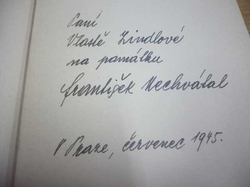 Paní
Vlastě Zindlové
na památku
František Nechvátal
V Praze, červenec 1945.